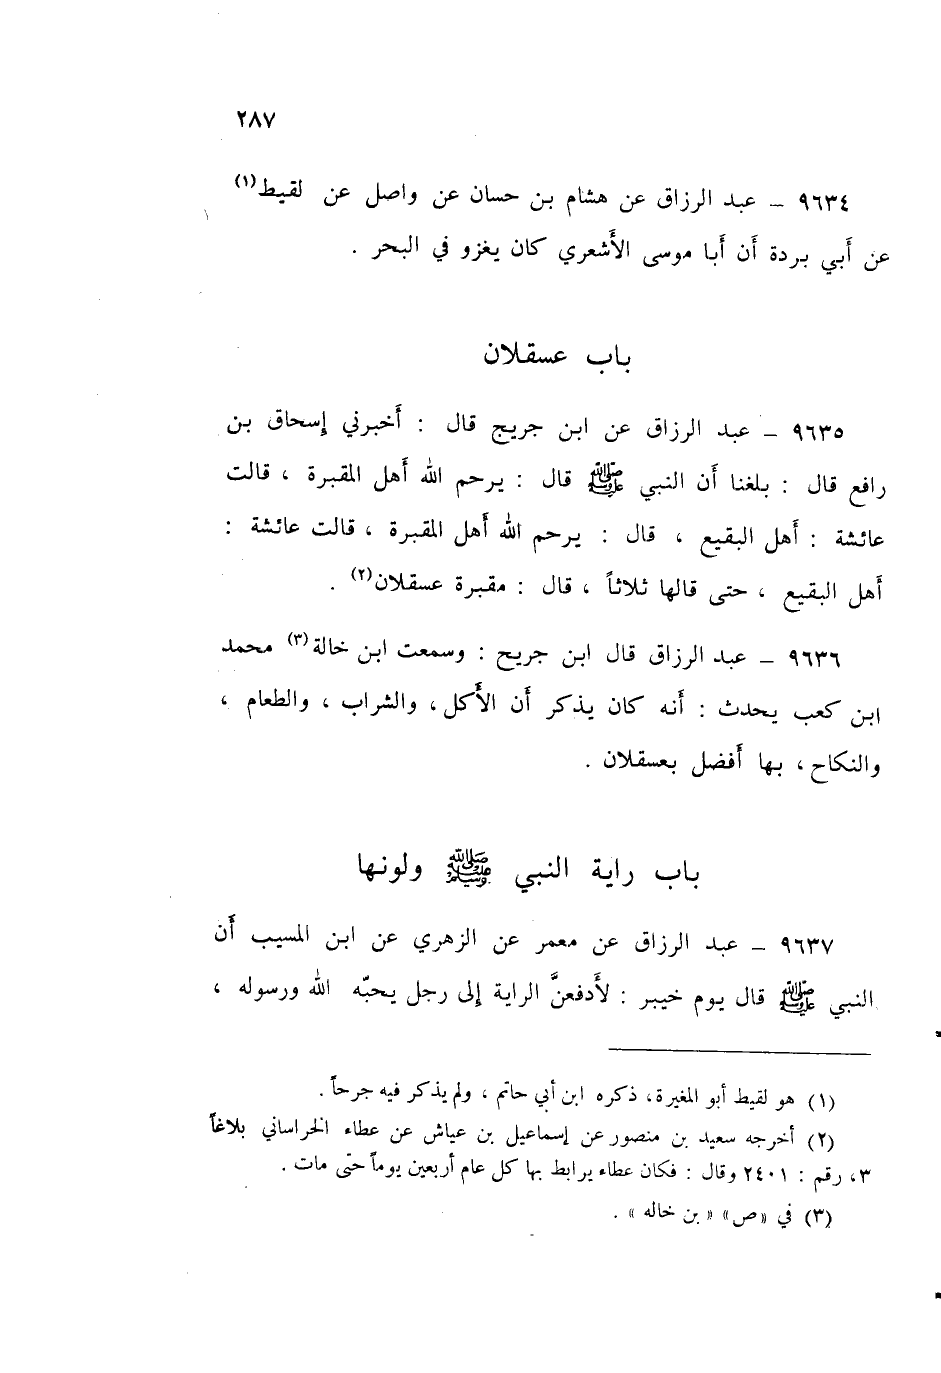 ٢٨٧
٩٦٣٤ – عبد الرزاق عن هشام بن حسان عن واصل عن لقيط(١)
عن أبي بردة أن أبا موسى الأشعري كان يغزو في البحر .
باب عسقلان
٩٦٣٥ – عبد الرزاق عن ابن جريج قال : أخبرني إسحاق بن
رافع قال : بلغنا أن النبي ﷺ قال : يرحم الله أهل المقبرة ، قالت
عائشة : أهل البقيع ، قال : يرحم الله أهل المقبرة ، قالت عائشة :
أهل البقيع ، حتى قالها ثلاثاً ، قال : مقبرة عسقلان(٢) .
٩٦٣٦ – عبد الرزاق قال ابن جريج : وسمعت ابن خالة(٣) محمد
ابن كعب يحدث : أنه كان يذكر أن الأكل ، والشراب ، والطعام ،
والنكاح ، بها أفضل بعسقلان .
باب راية النبي ﷺ ولونها
٩٦٣٧ – عبد الرزاق عن معمر عن الزهري عن ابن المسيب أن
النبي ﷺ قال يوم خيبر : لأدفعنَّ الراية إلى رجل يحبّه الله ورسوله ،
(١) هو لقيط أبو المغيرة ، ذكره ابن أبي حاتم ، ولم يذكر فيه جرحاً .
(٢) أخرجه سعيد بن منصور عن إسماعيل بن عياش عن عطاء الخراساني بلاغاً
٣ ، رقم : ٢٤٠١ وقال : فكان عطاء يرابط بها كل عام أربعين يوماً حتّى مات .
(٣) في «ص» « بن خاله » .